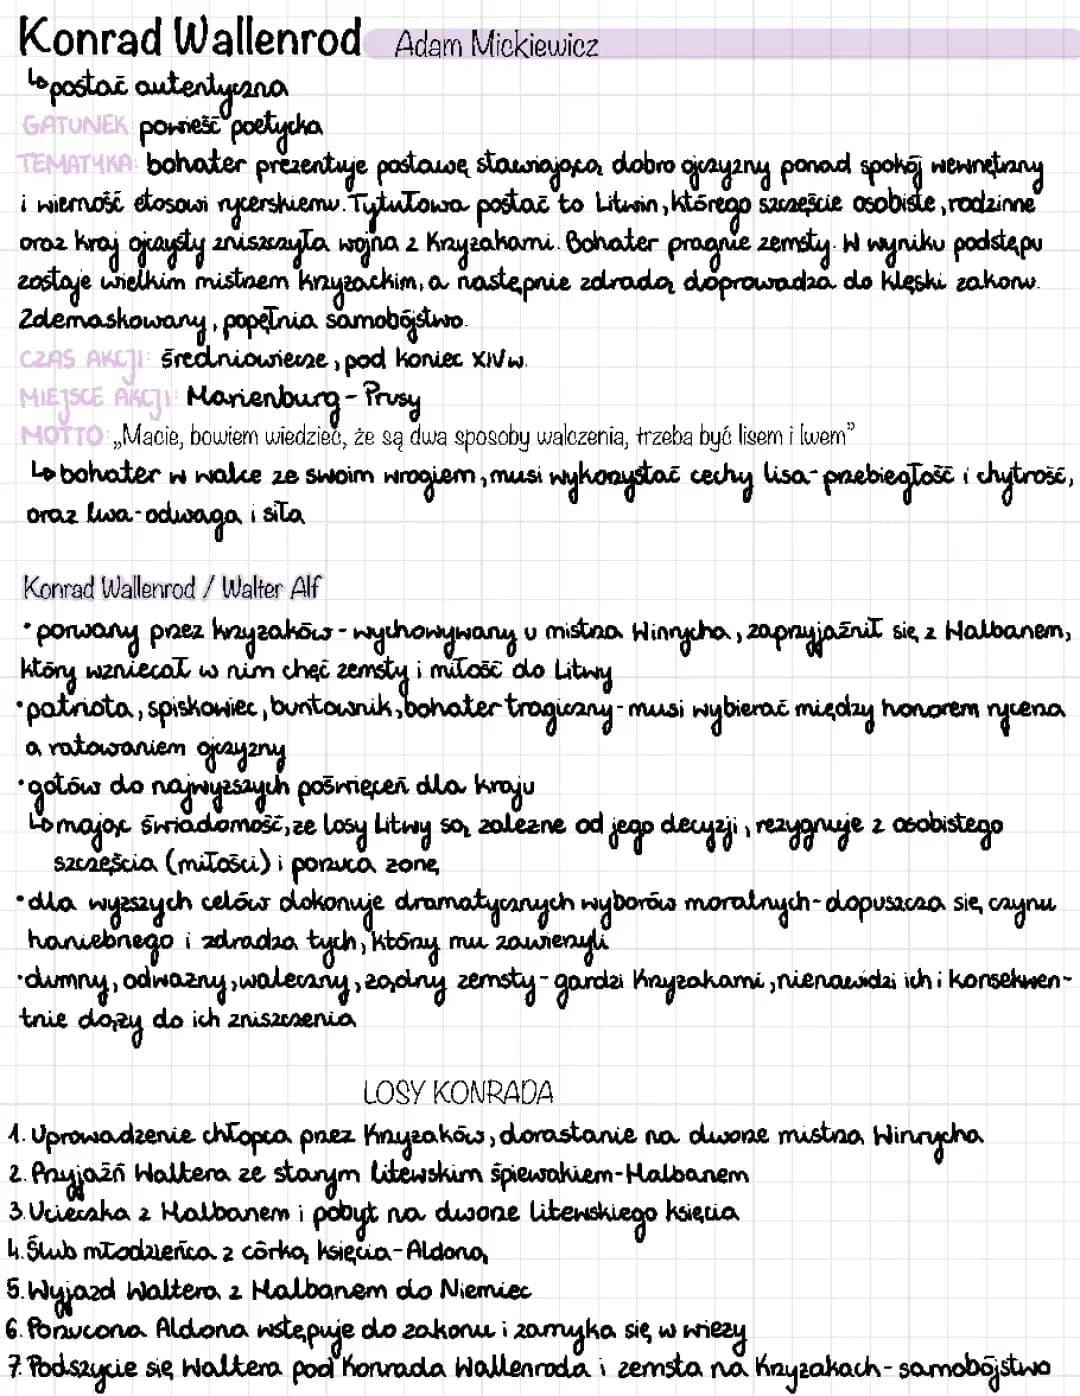 Konrad Wallenrod Adam Mickiewicz
↳ postać autentyczna
GATUNEK: powieść poetycka
TEMATYKA: bohater prezentuje postawę stawiającą dobro ojczyzny ponad spokój wewnętrzny
i wierność etosowi rycerskiemu. Tytułowa postać to Litwin, którego szczęście osobiste, rodzinne
oraz kraj ojczysty zniszczyła wojna z Krzyżakami. Bohater pragnie zemsty. W wyniku podstępu
zostaje wielkim mistrzem krzyżackim, a następnie zdradą doprowadza do klęski zakonu.
Zdemaskowany, popełnia samobójstwo.
CZAS AKCJI: średniowiecze, pod koniec XIV w.
MIEJSCE AKCJI: Marienburg - Prusy
MOTTO: „Macie, bowiem wiedzieć, że są dwa sposoby walczenia, trzeba być lisem i lwem"
↳ bohater w walce ze swoim wrogiem, musi wykorzystać cechy lisa - przebiegłość i chytrość,
oraz lwa - odwaga i siła
Konrad Wallenrod / Walter Alf
• porwany przez krzyżaków - wychowywany u mistrza Winrycha, zaprzyjaźnił się z Halbanem,
który wzniecał w nim chęć zemsty i miłość do Litwy
• patriota, spiskowiec, buntownik, bohater tragiczny - musi wybierać między honorem rycerza
a ratowaniem ojczyzny
• gotów do najwyższych poświęceń dla kraju
↳ mając świadomość, że losy Litwy są zależne od jego decyzji, rezygnuje z osobistego
szczęścia (miłości) i porzuca żonę
• dla wyższych celów dokonuje dramatycznych wyborów moralnych - dopuszcza się czynu
haniebnego i zdradza tych, którzy mu zawierzyli
• dumny, odważny, waleczny, żądny zemsty - gardzi Krzyżakami, nienawidzi ich i konsekwen-
tnie dąży do ich zniszczenia
LOSY KONRADA
1. Uprowadzenie chłopca przez Krzyżaków, dorastanie na dworze mistrza Winrycha
2. Przyjaźń Waltera ze starym litewskim śpiewakiem - Halbanem
3. Ucieczka z Halbanem i pobyt na dworze litewskiego księcia
4. Ślub młodzieńca z córką księcia - Aldoną
5. Wyjazd Waltera z Halbanem do Niemiec
6. Porzucona Aldona wstępuje do zakonu i zamyka się w wieży
7. Podszycie się Waltera pod Konrada Wallenroda i zemsta na Krzyżakach - samobójstwo